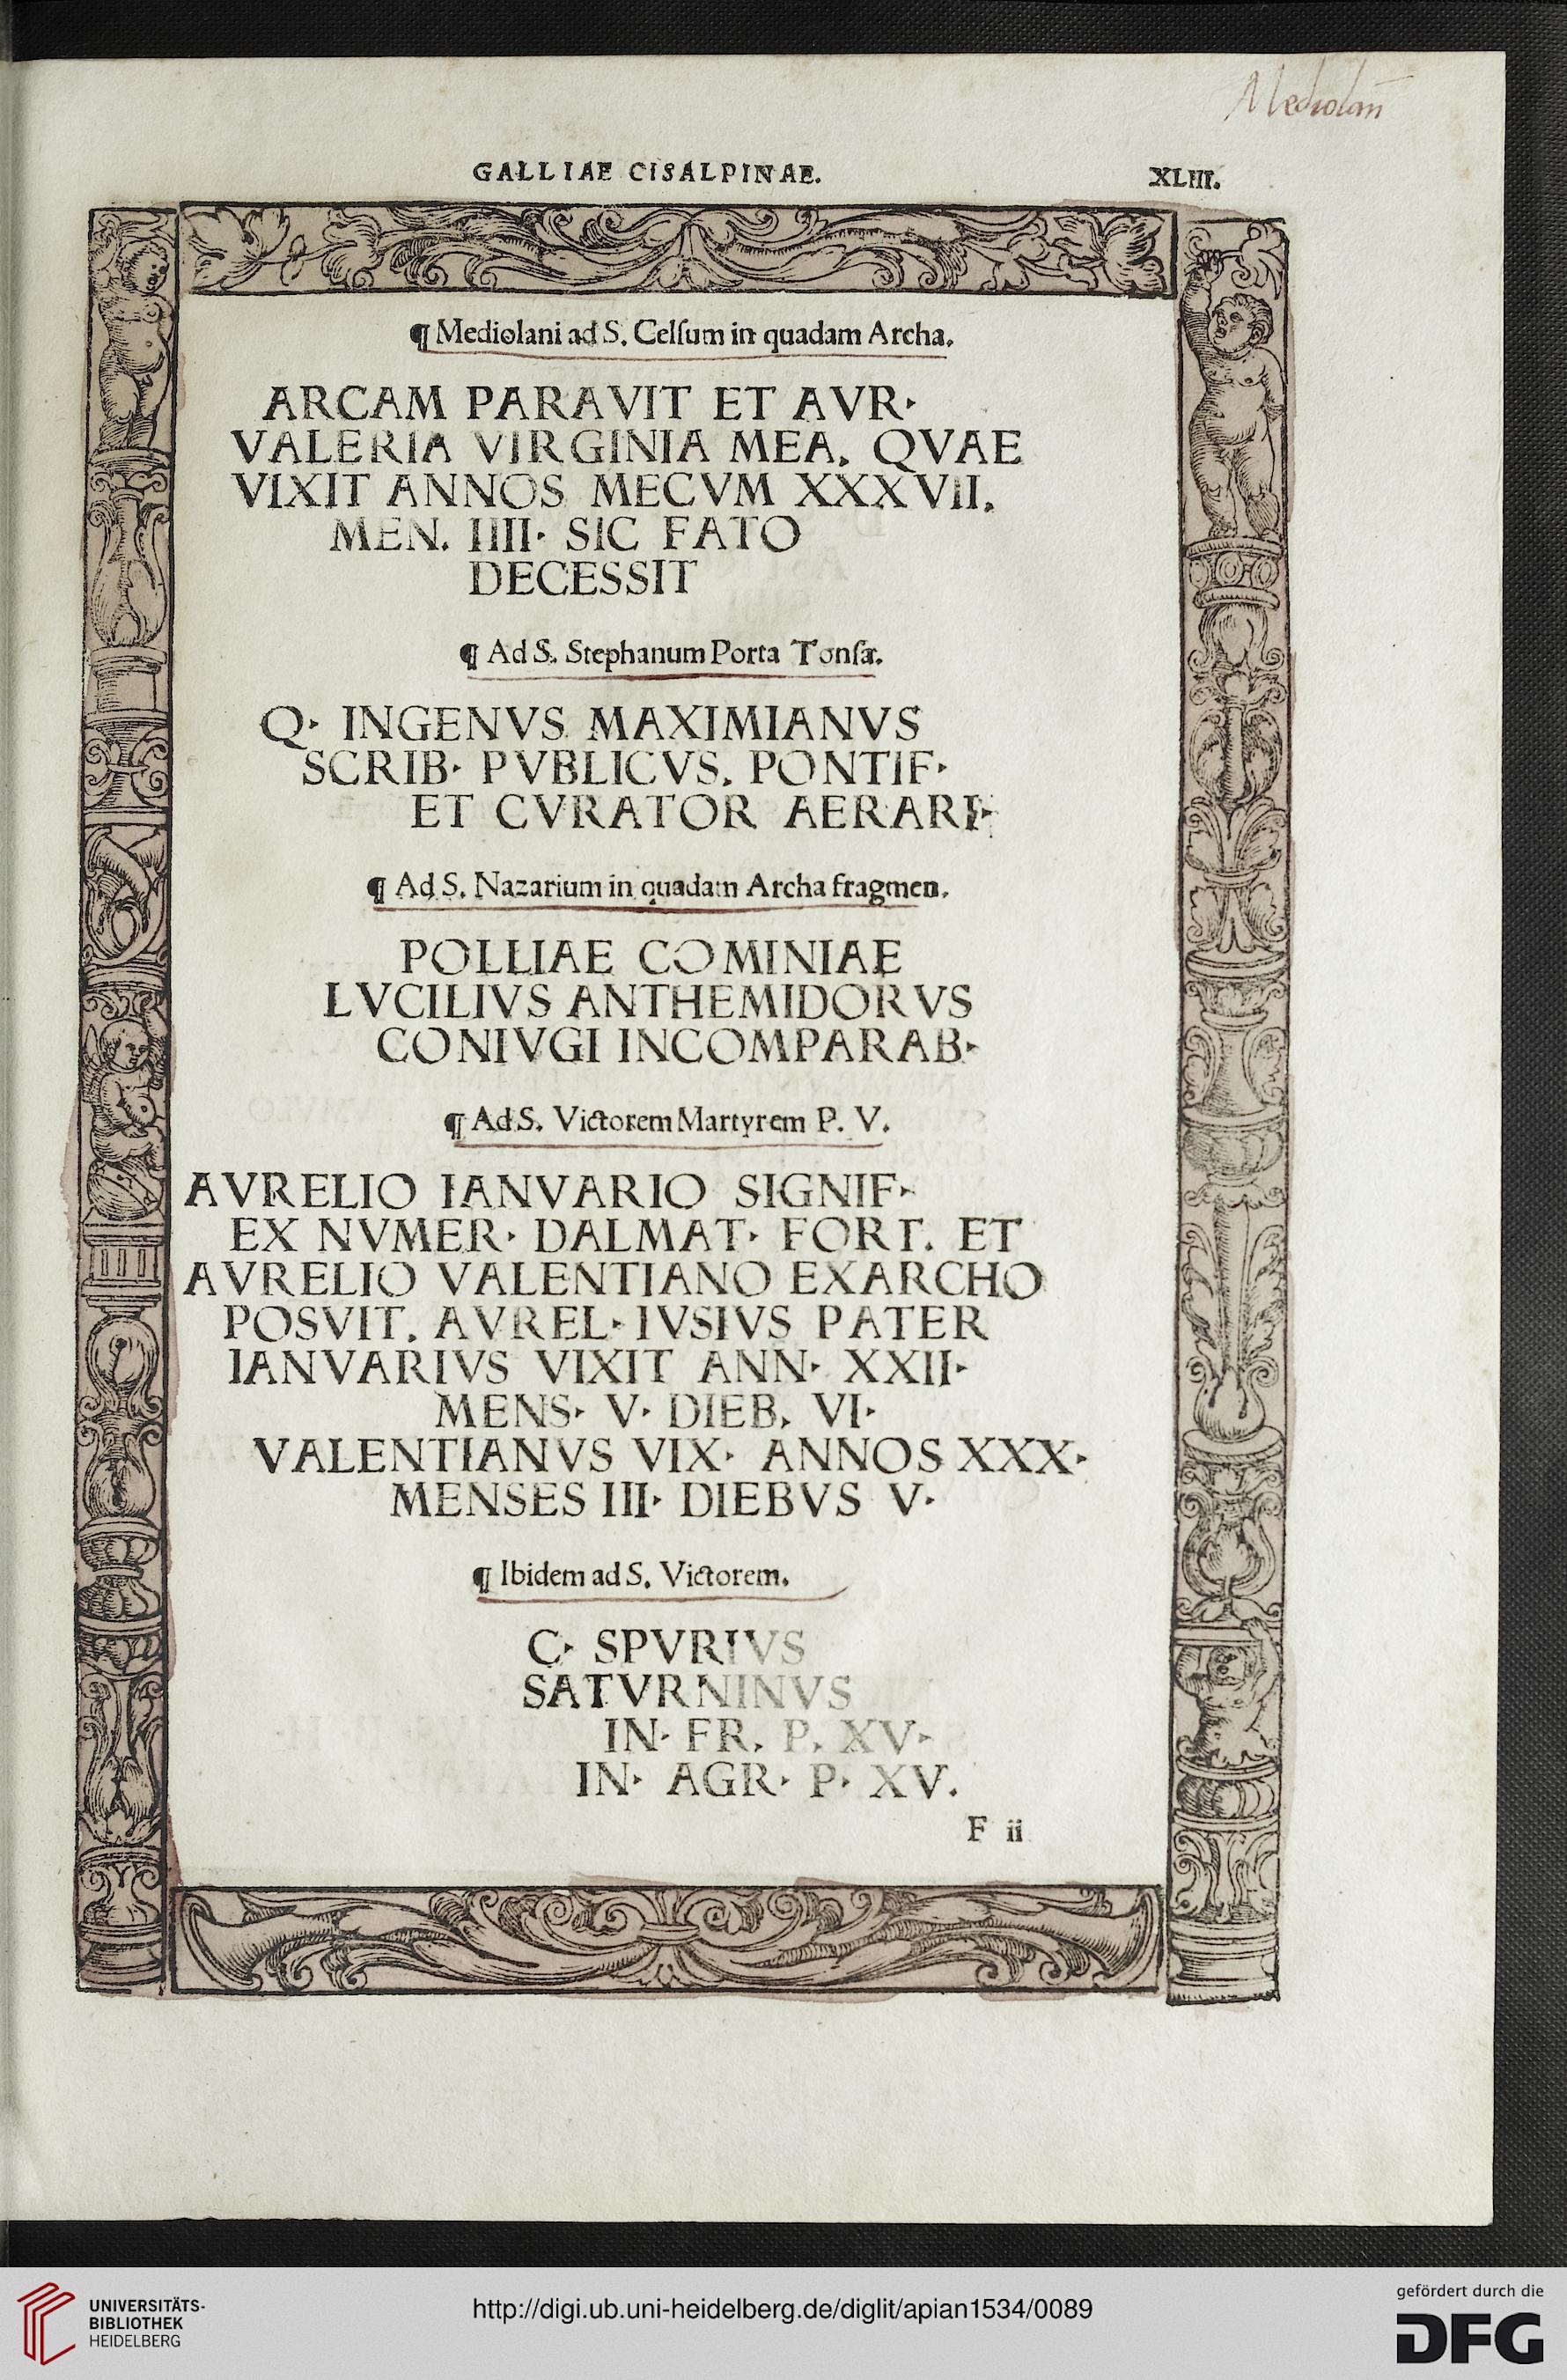 Mediolañ
GALLIAE CISALPINAE. XLIII.
¶ Mediolani ad S. Celſum in quadam Archa.
ARCAM PARAVIT ET AVR·
VALERIA VIRGINIA MEA. QVAE
VIXIT ANNOS MECVM XXXVII.
MEN. IIII· SIC FATO
DECESSIT
¶ Ad S. Stephanum Porta Tonſæ.
Q· INGENVS MAXIMIANVS
SCRIB· PVBLICVS. PONTIF·
ET CVRATOR AERARI·
¶ Ad S. Nazarium in quadam Archa fragmen.
POLLIAE COMINIAE
LVCILIVS ANTHEMIDORVS
CONIVGI INCOMPARAB·
¶ Ad S. Victorem Martyrem P. V.
AVRELIO IANVARIO SIGNIF·
EX NVMER· DALMAT· FORT. ET
AVRELIO VALENTIANO EXARCHO
POSVIT. AVREL· IVSIVS PATER
IANVARIVS VIXIT ANN· XXII·
MENS· V· DIEB. VI·
VALENTIANVS VIX· ANNOS XXX·
MENSES III· DIEBVS V·
¶ Ibidem ad S. Victorem.
C· SPVRIVS
SATVRNINVS
IN· FR. P. XV·
IN· AGR· P· XV.
F ii
UNIVERSITÄTS-
BIBLIOTHEK
HEIDELBERG
http://digi.ub.uni-heidelberg.de/diglit/apian1534/0089
gefördert durch die
DFG